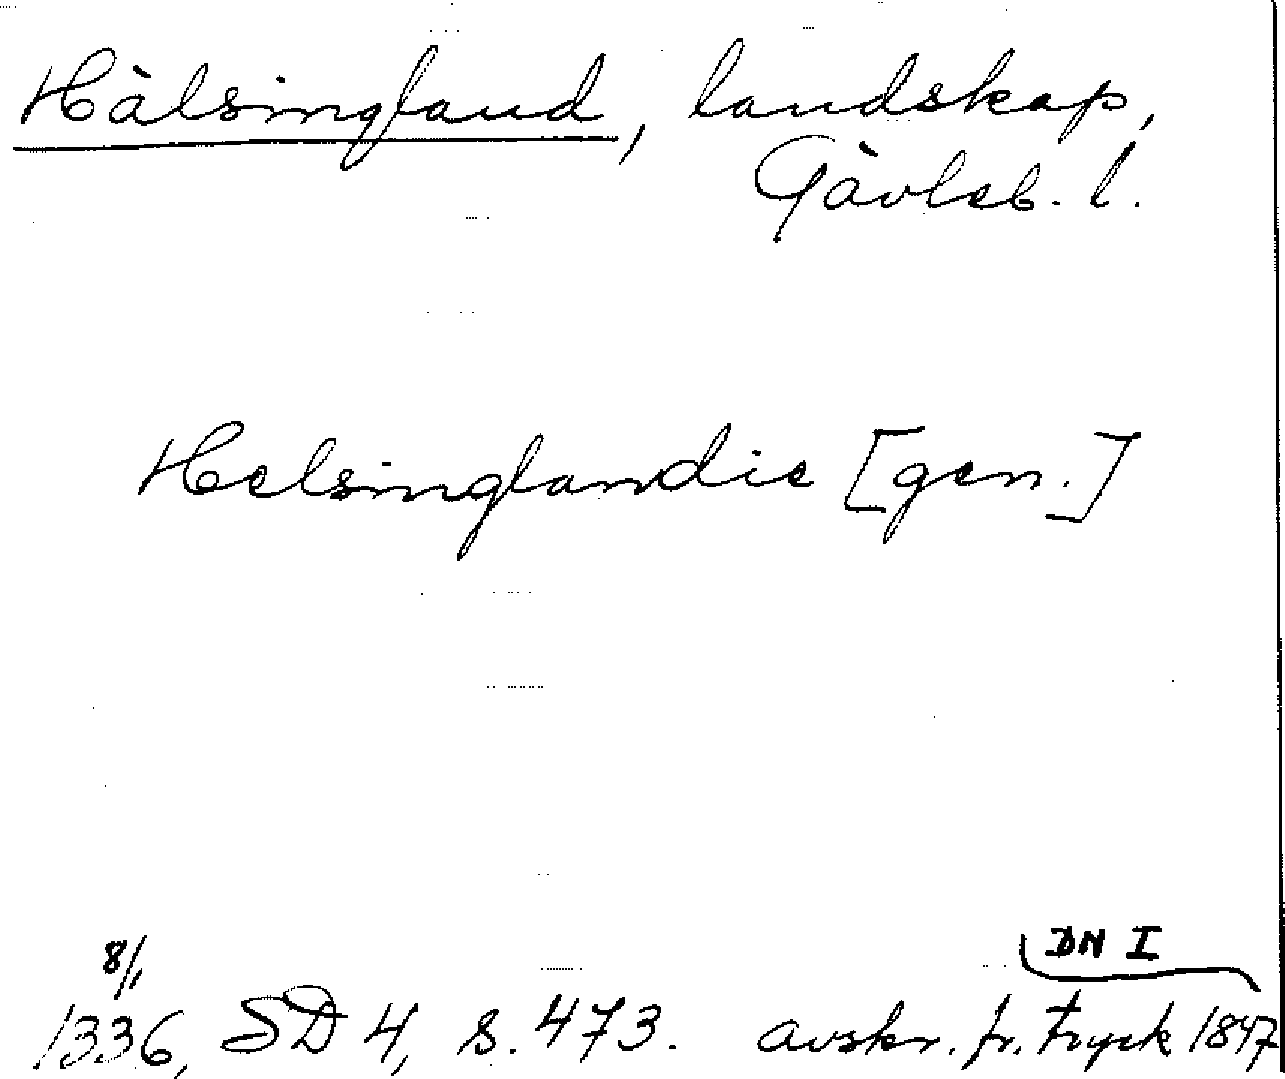 Hälsingland, landskap,
Gävleb. l.
Helsinglandie [gen.]
8/1
DN I
1336, SD 4, s. 473. avskr. fr. tryck 1847